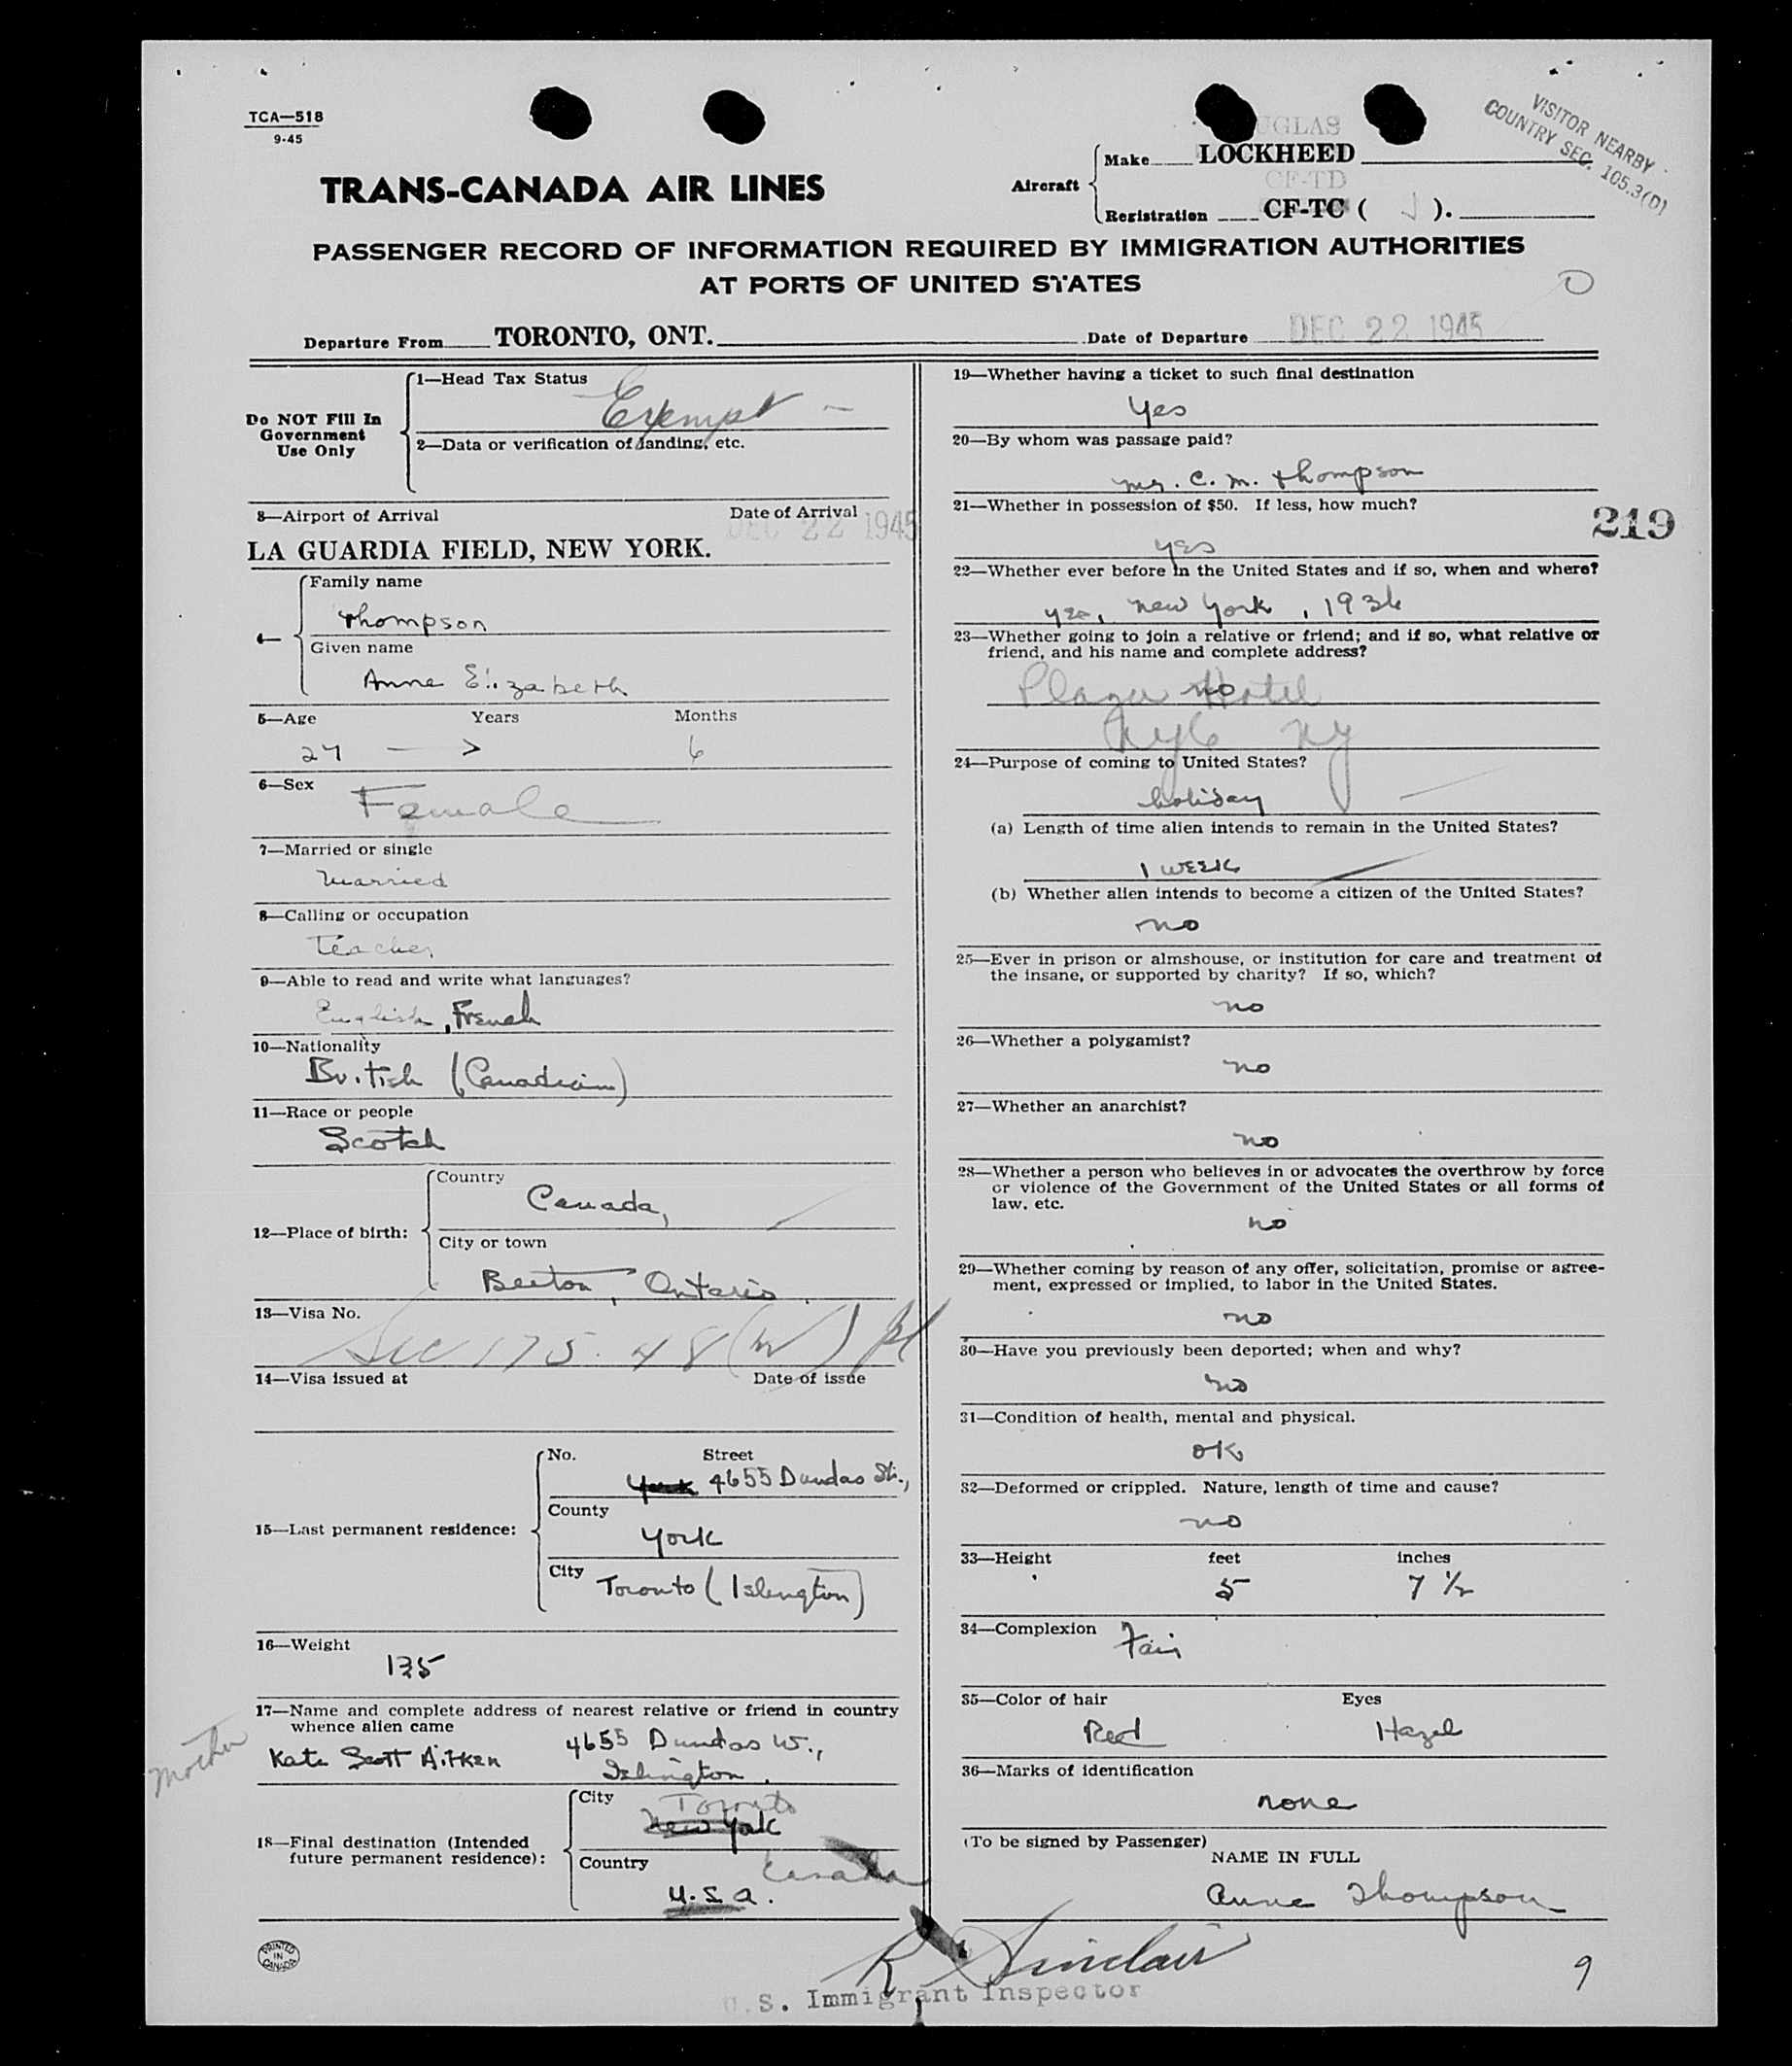 TCA—518
9-45
VISITOR NEARBY
COUNTRY SEC. 105.3(D)
TRANS-CANADA AIR LINES
Aircraft
Make LOCKHEED
CF-TD
Registration CF-TC ( J ).
PASSENGER RECORD OF INFORMATION REQUIRED BY IMMIGRATION AUTHORITIES
AT PORTS OF UNITED STATES
Departure From TORONTO, ONT. Date of Departure DEC 22 1945
Do NOT Fill In
Government
Use Only
1—Head Tax Status
Exempt —
2—Data or verification of landing, etc.
3—Airport of Arrival Date of Arrival
DEC 22 1945
LA GUARDIA FIELD, NEW YORK.
4—
Family name
Thompson
Given name
Anne Elizabeth
5—Age Years Months
27 — > 6
6—Sex
Female
7—Married or single
Married
8—Calling or occupation
Teacher
9—Able to read and write what languages?
English, French
10—Nationality
British (Canadian)
11—Race or people
Scotch
12—Place of birth:
Country
Canada,
City or town
Beeton, Ontario
13—Visa No.
Sec 175.48 (w)
14—Visa issued at Date of issue
15—Last permanent residence:
No. Street
York 4655 Dundas St.,
County
York
City
Toronto (Islington)
16—Weight
135
17—Name and complete address of nearest relative or friend in country
whence alien came
mother
Kate Scott Aitken 4655 Dundas W.,
Islington.
18—Final destination (Intended
future permanent residence):
City
Toronto
New York
Country
Canada
U.S.A.
PRINTED
IN
CANADA
19—Whether having a ticket to such final destination
Yes
20—By whom was passage paid?
Mr. C. M. Thompson
21—Whether in possession of $50. If less, how much?
yes
219
22—Whether ever before in the United States and if so, when and where?
yes, New York, 1936
23—Whether going to join a relative or friend; and if so, what relative or
friend, and his name and complete address?
no
Plaza Hotel
NYC NY
24—Purpose of coming to United States?
holiday
(a) Length of time alien intends to remain in the United States?
1 week
(b) Whether alien intends to become a citizen of the United States?
no
25—Ever in prison or almshouse, or institution for care and treatment of
the insane, or supported by charity? If so, which?
no
26—Whether a polygamist?
no
27—Whether an anarchist?
no
28—Whether a person who believes in or advocates the overthrow by force
or violence of the Government of the United States or all forms of
law, etc.
no
29—Whether coming by reason of any offer, solicitation, promise or agree-
ment, expressed or implied, to labor in the United States.
no
30—Have you previously been deported; when and why?
no
31—Condition of health, mental and physical.
OK
32—Deformed or crippled. Nature, length of time and cause?
no
33—Height feet inches
5 7 ½
34—Complexion Fair
35—Color of hair Eyes
Red Hazel
36—Marks of identification
none
(To be signed by Passenger)
NAME IN FULL
Anne Thompson
R Sinclair
U.S. Immigrant Inspector
9